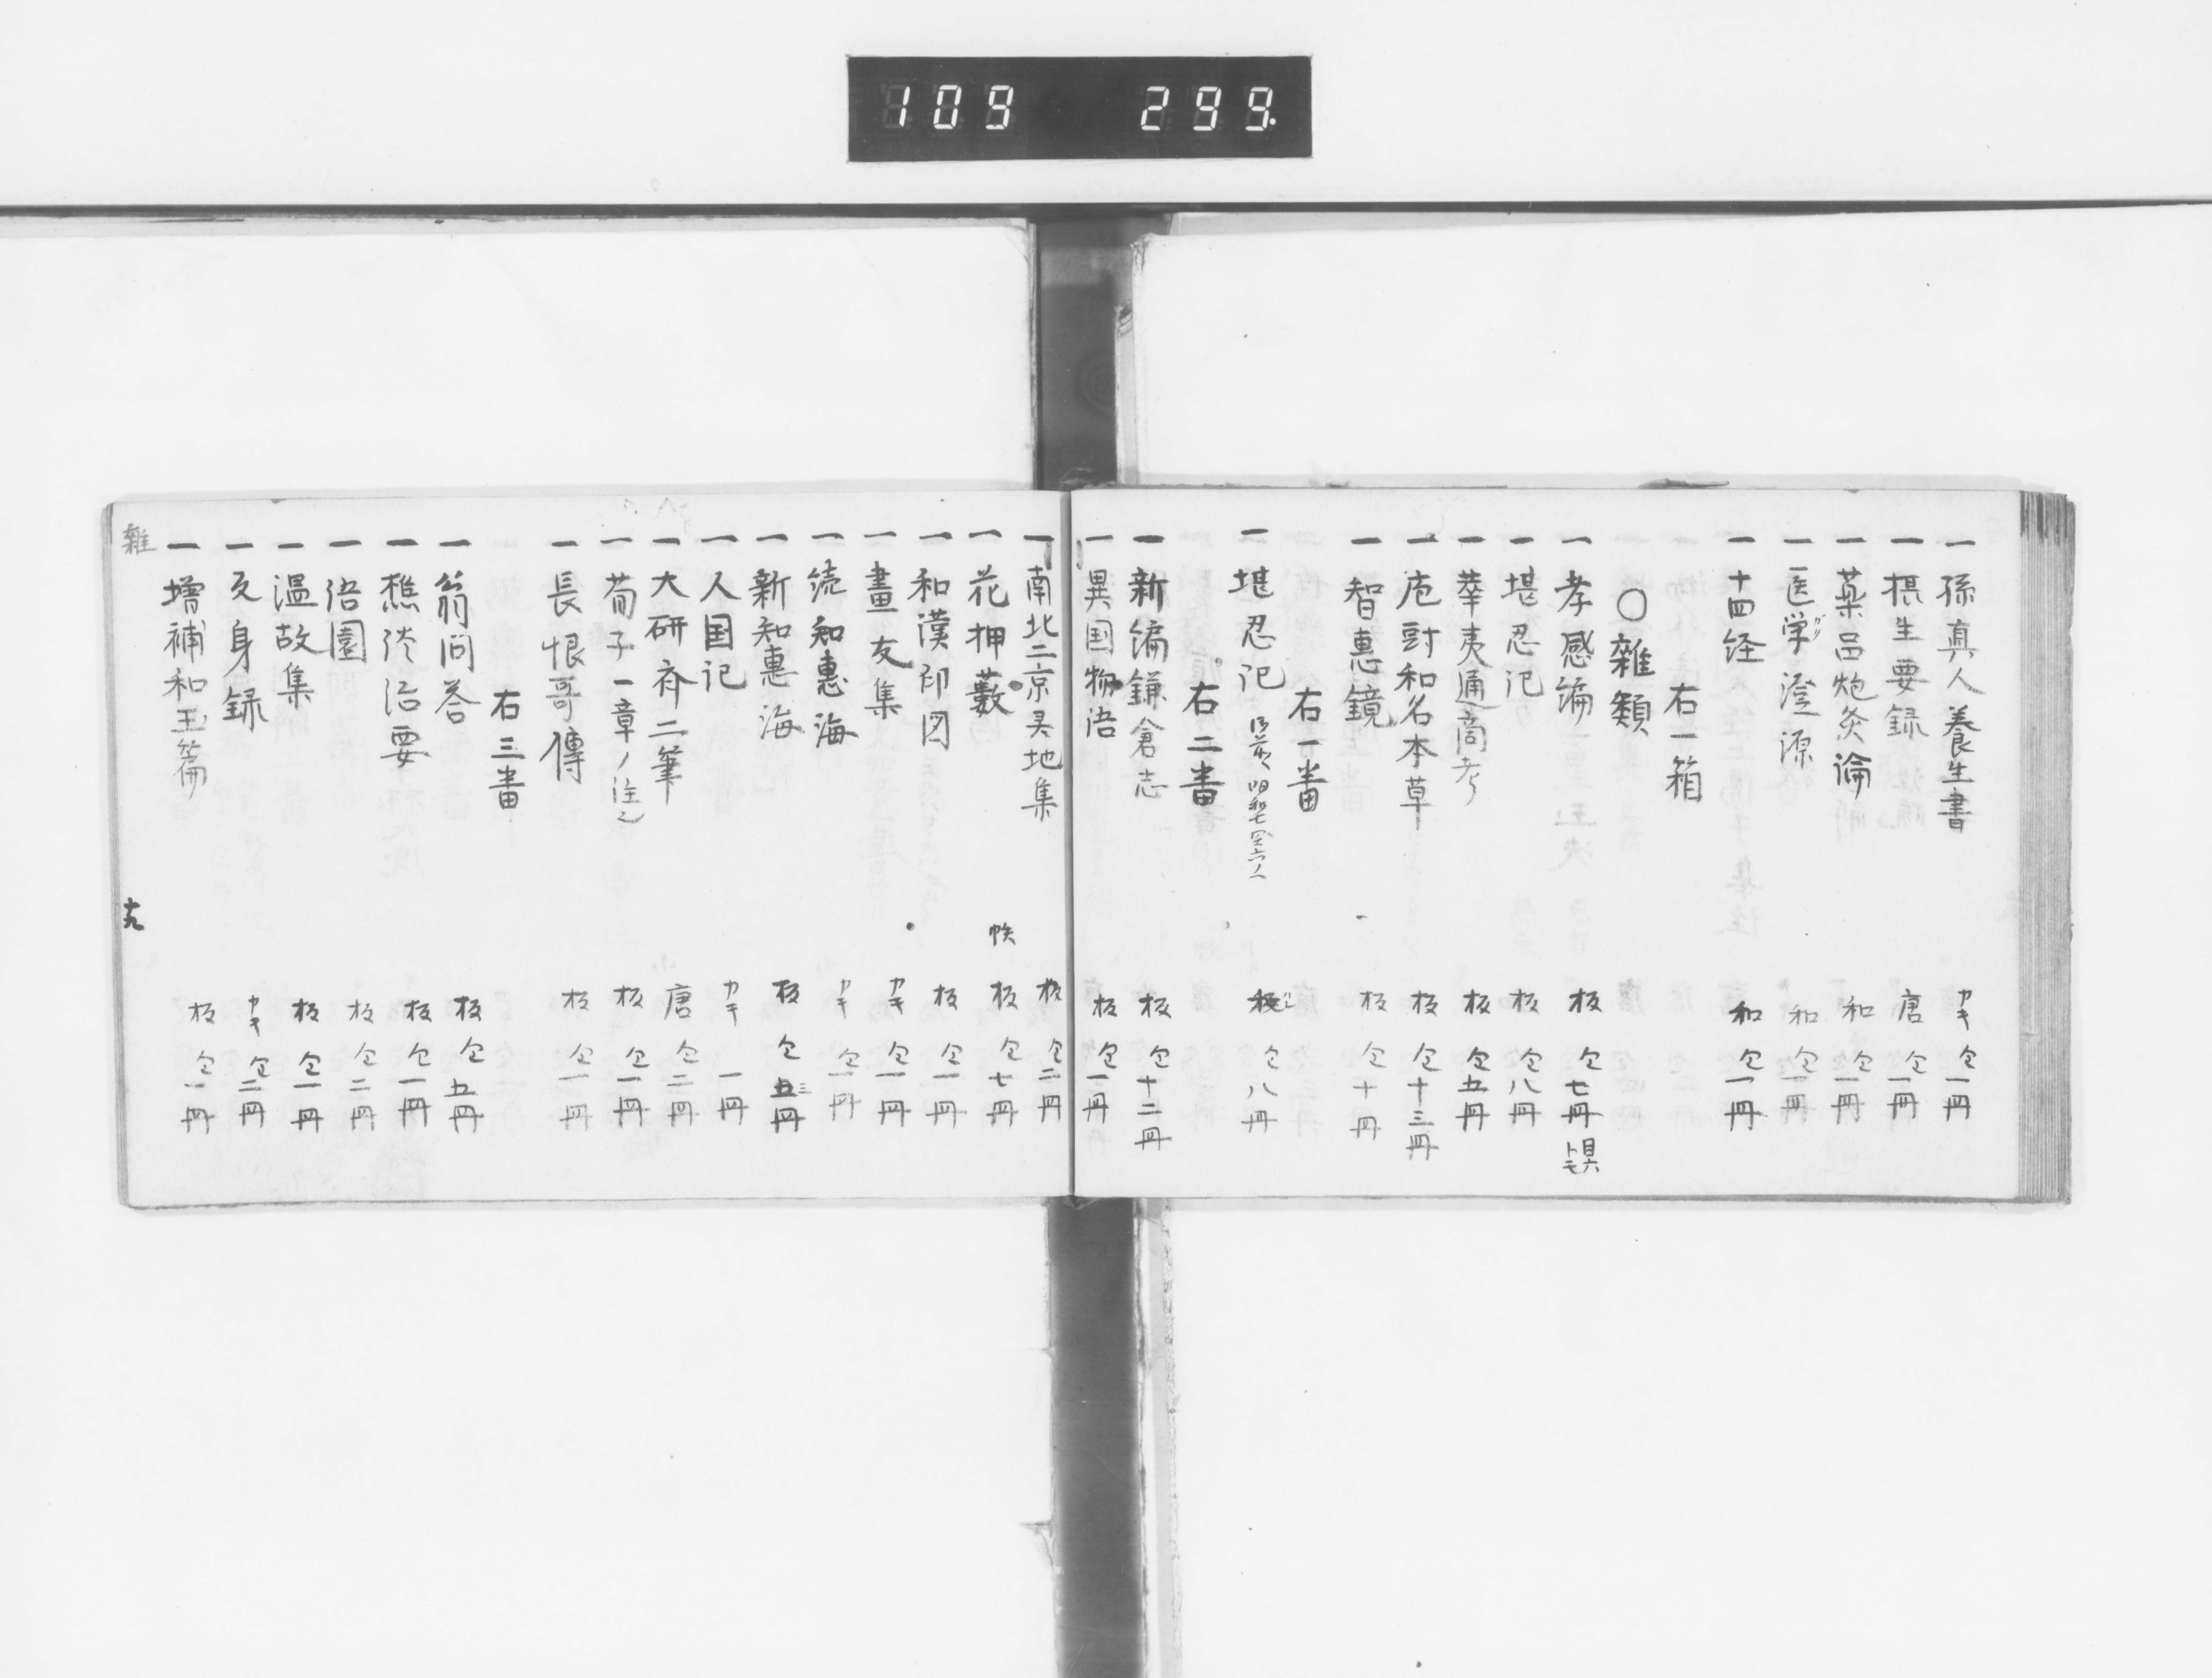 109 299.
一孫真人養生書 カキ 仝一冊
一摂生要録 唐 仝一冊
一薬品炮灸論 和 仝一冊
一医学澄源 和 仝一冊
一十四経 和 仝一冊
右一箱
〇雜類
一孝感編 板 仝七冊
一堪忍記 板 仝八冊
一華夷通商考 板 仝五冊
一庖厨和名本草 板 仝十三冊
一智惠鏡 板 仝十冊
右一番
一堪忍記 仝八冊
右二番
一新編鎌倉志 板 仝十二冊
一異国物语 板 仝一冊
一南北二京灵地集 板 仝二冊
一花押藪 帙 板 仝七冊
一和漢印図 板 仝一冊
一畫友集 カキ 仝一冊
一続知惠海 カキ 仝一冊
一新知惠海 板 仝五冊
一人国記 カキ 一冊
一大研斉二筆 唐 仝二冊
一荀子一章ノ注 板 仝一冊
一長恨哥傳 板 仝一冊
右三番
一翁问答 板 仝五冊
一樵談治要 板 仝一冊
一语園 板 仝二冊
一温故集 板 仝一冊
一反身録 カキ 仝二冊
一増補和玉篇 板 仝一冊
雜
十九